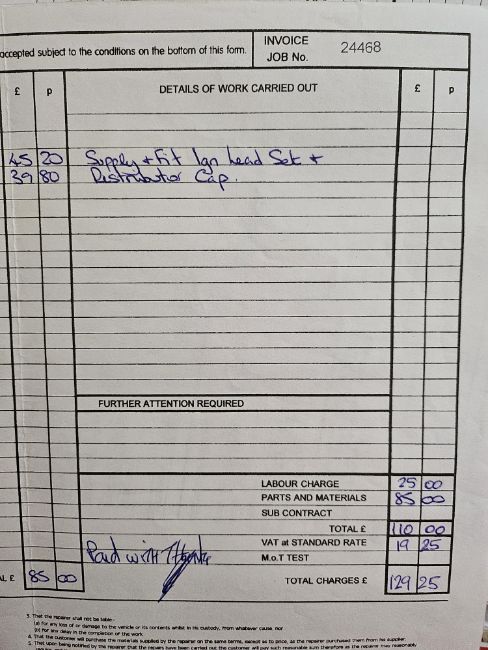 accepted subject to the conditions on the bottom of this form.
INVOICE
JOB No. 24468
£ p DETAILS OF WORK CARRIED OUT £ p
45 20 Supply + Fit Ign Lead Set +
39 80 Distributor Cap.
FURTHER ATTENTION REQUIRED
LABOUR CHARGE 25 00
PARTS AND MATERIALS 85 00
SUB CONTRACT
TOTAL £ 110 00
VAT at STANDARD RATE 19 25
Paid with Thanks M.o.T TEST
AL £ 85 00 TOTAL CHARGES £ 129 25
3. That the repairer shall not be liable:-
(a) For any loss of or damage to the vehicle or its contents whilst in his custody, from whatever cause, nor
(b) For any delay in the completion of the work
4. That the customer will purchase the materials supplied by the repairer on the same terms, except as to price, as the repairer purchased them from his supplier.
5. That upon being notified by the repairer that the repairs have been carried out the customer will pay such reasonable sum therefore as the repairer may reasonably